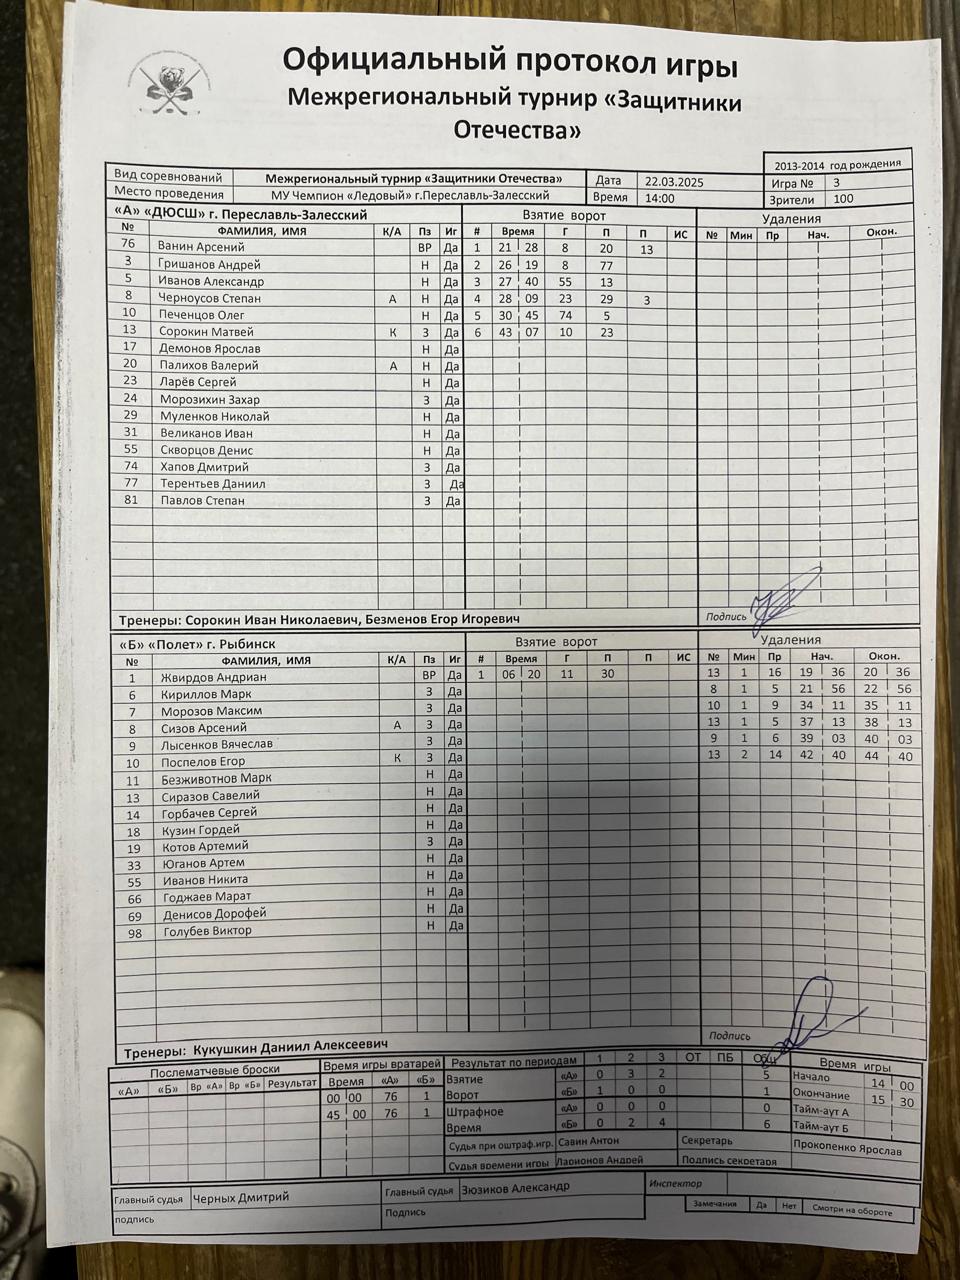 Официальный протокол игры
Межрегиональный турнир «Защитники
Отечества»
2013-2014 год рождения
Вид соревнований Межрегиональный турнир «Защитники Отечества» Дата 22.03.2025 Игра № 3
Место проведения МУ Чемпион «Ледовый» г.Переславль-Залесский Время 14:00 Зрители 100
«А» «ДЮСШ» г. Переславль-Залесский Взятие ворот Удаления
№ ФАМИЛИЯ, ИМЯ К/А Пз Иг # Время Г П П ИС № Мин Пр Нач. Окон.
76 Ванин Арсений ВР Да 1 21 28 8 20 13
3 Гришанов Андрей Н Да 2 26 19 8 77
5 Иванов Александр Н Да 3 27 40 55 13
8 Черноусов Степан А Н Да 4 28 09 23 29 3
10 Печенцов Олег Н Да 5 30 45 74 5
13 Сорокин Матвей К З Да 6 43 07 10 23
17 Демонов Ярослав Н Да
20 Палихов Валерий А Н Да
23 Ларёв Сергей Н Да
24 Морозихин Захар З Да
29 Муленков Николай Н Да
31 Великанов Иван Н Да
55 Скворцов Денис Н Да
74 Хапов Дмитрий З Да
77 Терентьев Даниил З Да
81 Павлов Степан З Да
Тренеры: Сорокин Иван Николаевич, Безменов Егор Игоревич Подпись
«Б» «Полет» г. Рыбинск Взятие ворот Удаления
№ ФАМИЛИЯ, ИМЯ К/А Пз Иг # Время Г П П ИС № Мин Пр Нач. Окон.
1 Жвирдов Андриан ВР Да 1 06 20 11 30 13 1 16 19 36 20 36
6 Кириллов Марк З Да 8 1 5 21 56 22 56
7 Морозов Максим З Да 10 1 9 34 11 35 11
8 Сизов Арсений А З Да 13 1 5 37 13 38 13
9 Лысенков Вячеслав З Да 9 1 6 39 03 40 03
10 Поспелов Егор К З Да 13 2 14 42 40 44 40
11 Безживотнов Марк Н Да
13 Сиразов Савелий Н Да
14 Горбачев Сергей Н Да
18 Кузин Гордей Н Да
19 Котов Артемий З Да
33 Юганов Артем Н Да
55 Иванов Никита Н Да
66 Годжаев Марат Н Да
69 Денисов Дорофей Н Да
98 Голубев Виктор Н Да
Тренеры: Кукушкин Даниил Алексеевич Подпись
Послематчевые броски Время игры вратарей Результат по периодам 1 2 3 ОТ ПБ Общ Время игры
«А» «Б» Вр «А» Вр «Б» Результат Время «А» «Б» Взятие Ворот «А» 0 3 2 5 Начало 14 00
00 00 76 1 «Б» 1 0 0 1 Окончание 15 30
45 00 76 1 Штрафное Время «А» 0 0 0 0 Тайм-аут А
«Б» 0 2 4 6 Тайм-аут Б
Судья при оштраф.игр. Савин Антон Секретарь Прокопенко Ярослав
Судья времени игры Ларионов Андрей Подпись секретаря
Главный судья Черных Дмитрий Главный судья Зюзиков Александр Инспектор
подпись Подпись Замечания Да Нет Смотри на обороте